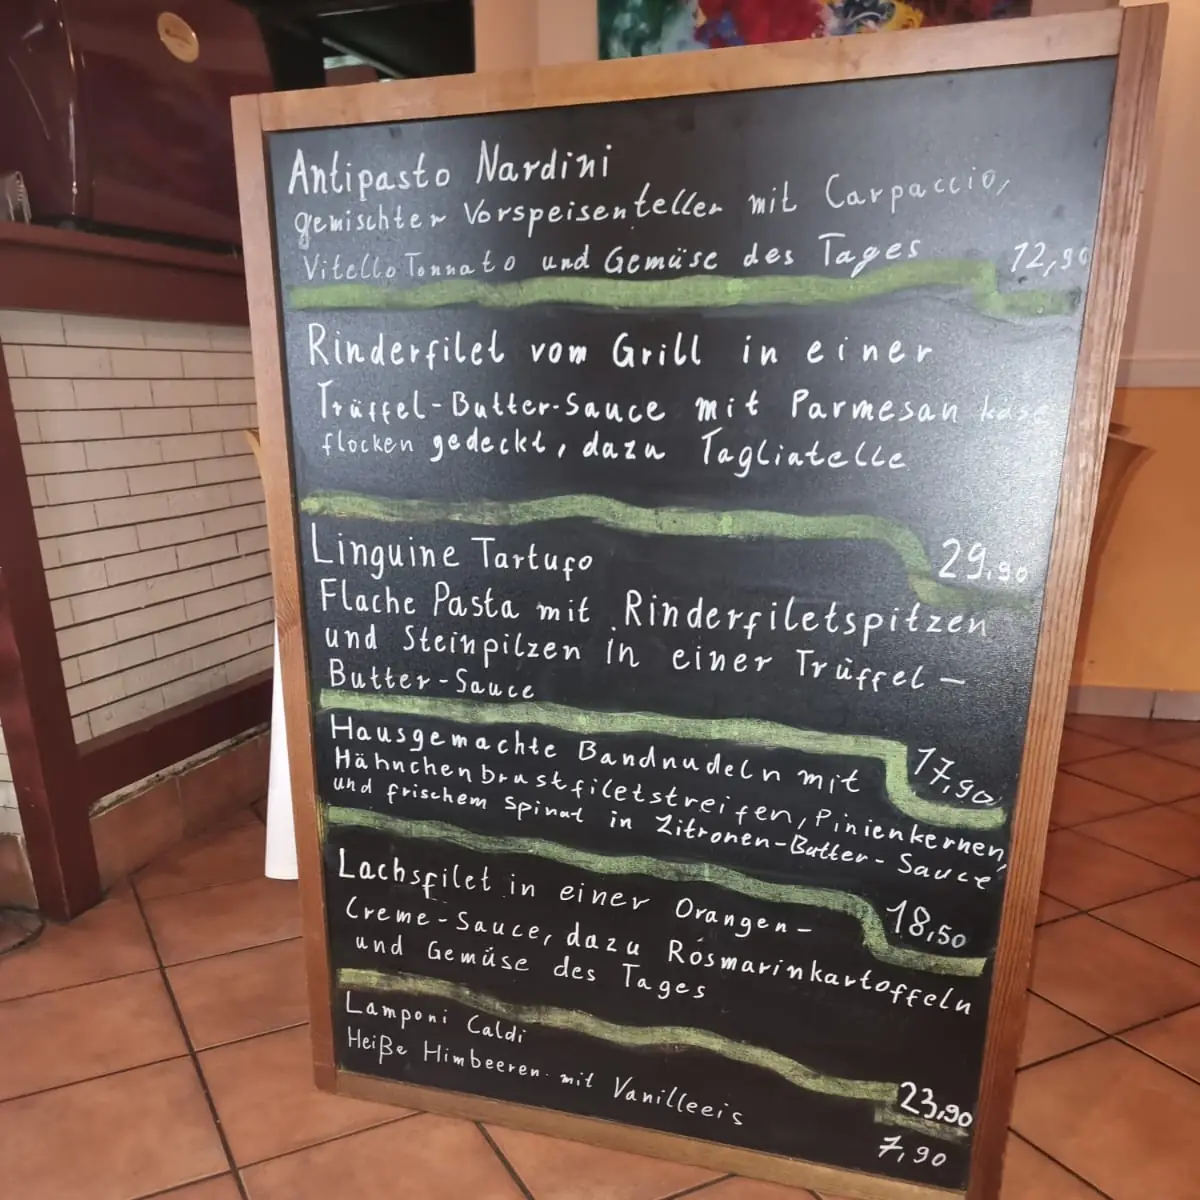 Antipasto Nardini
gemischter Vorspeisenteller mit Carpaccio,
Vitello Tonnato und Gemüse des Tages 12,90
Rinderfilet vom Grill in einer
Trüffel-Butter-Sauce mit Parmesan käse
flocken gedeckt, dazu Tagliatelle
29,90
Linguine Tartufo
Flache Pasta mit Rinderfiletspitzen
und Steinpilzen in einer Trüffel-
Butter-Sauce
17,90
Hausgemachte Bandnudeln mit
Hähnchenbrustfiletstreifen, Pinienkernen
und frischem Spinat in Zitronen-Butter-Sauce
18,50
Lachsfilet in einer Orangen-
Creme-Sauce, dazu Rosmarinkartoffeln
und Gemüse des Tages
23,90
Lamponi Caldi
Heiße Himbeeren mit Vanilleeis
7,90